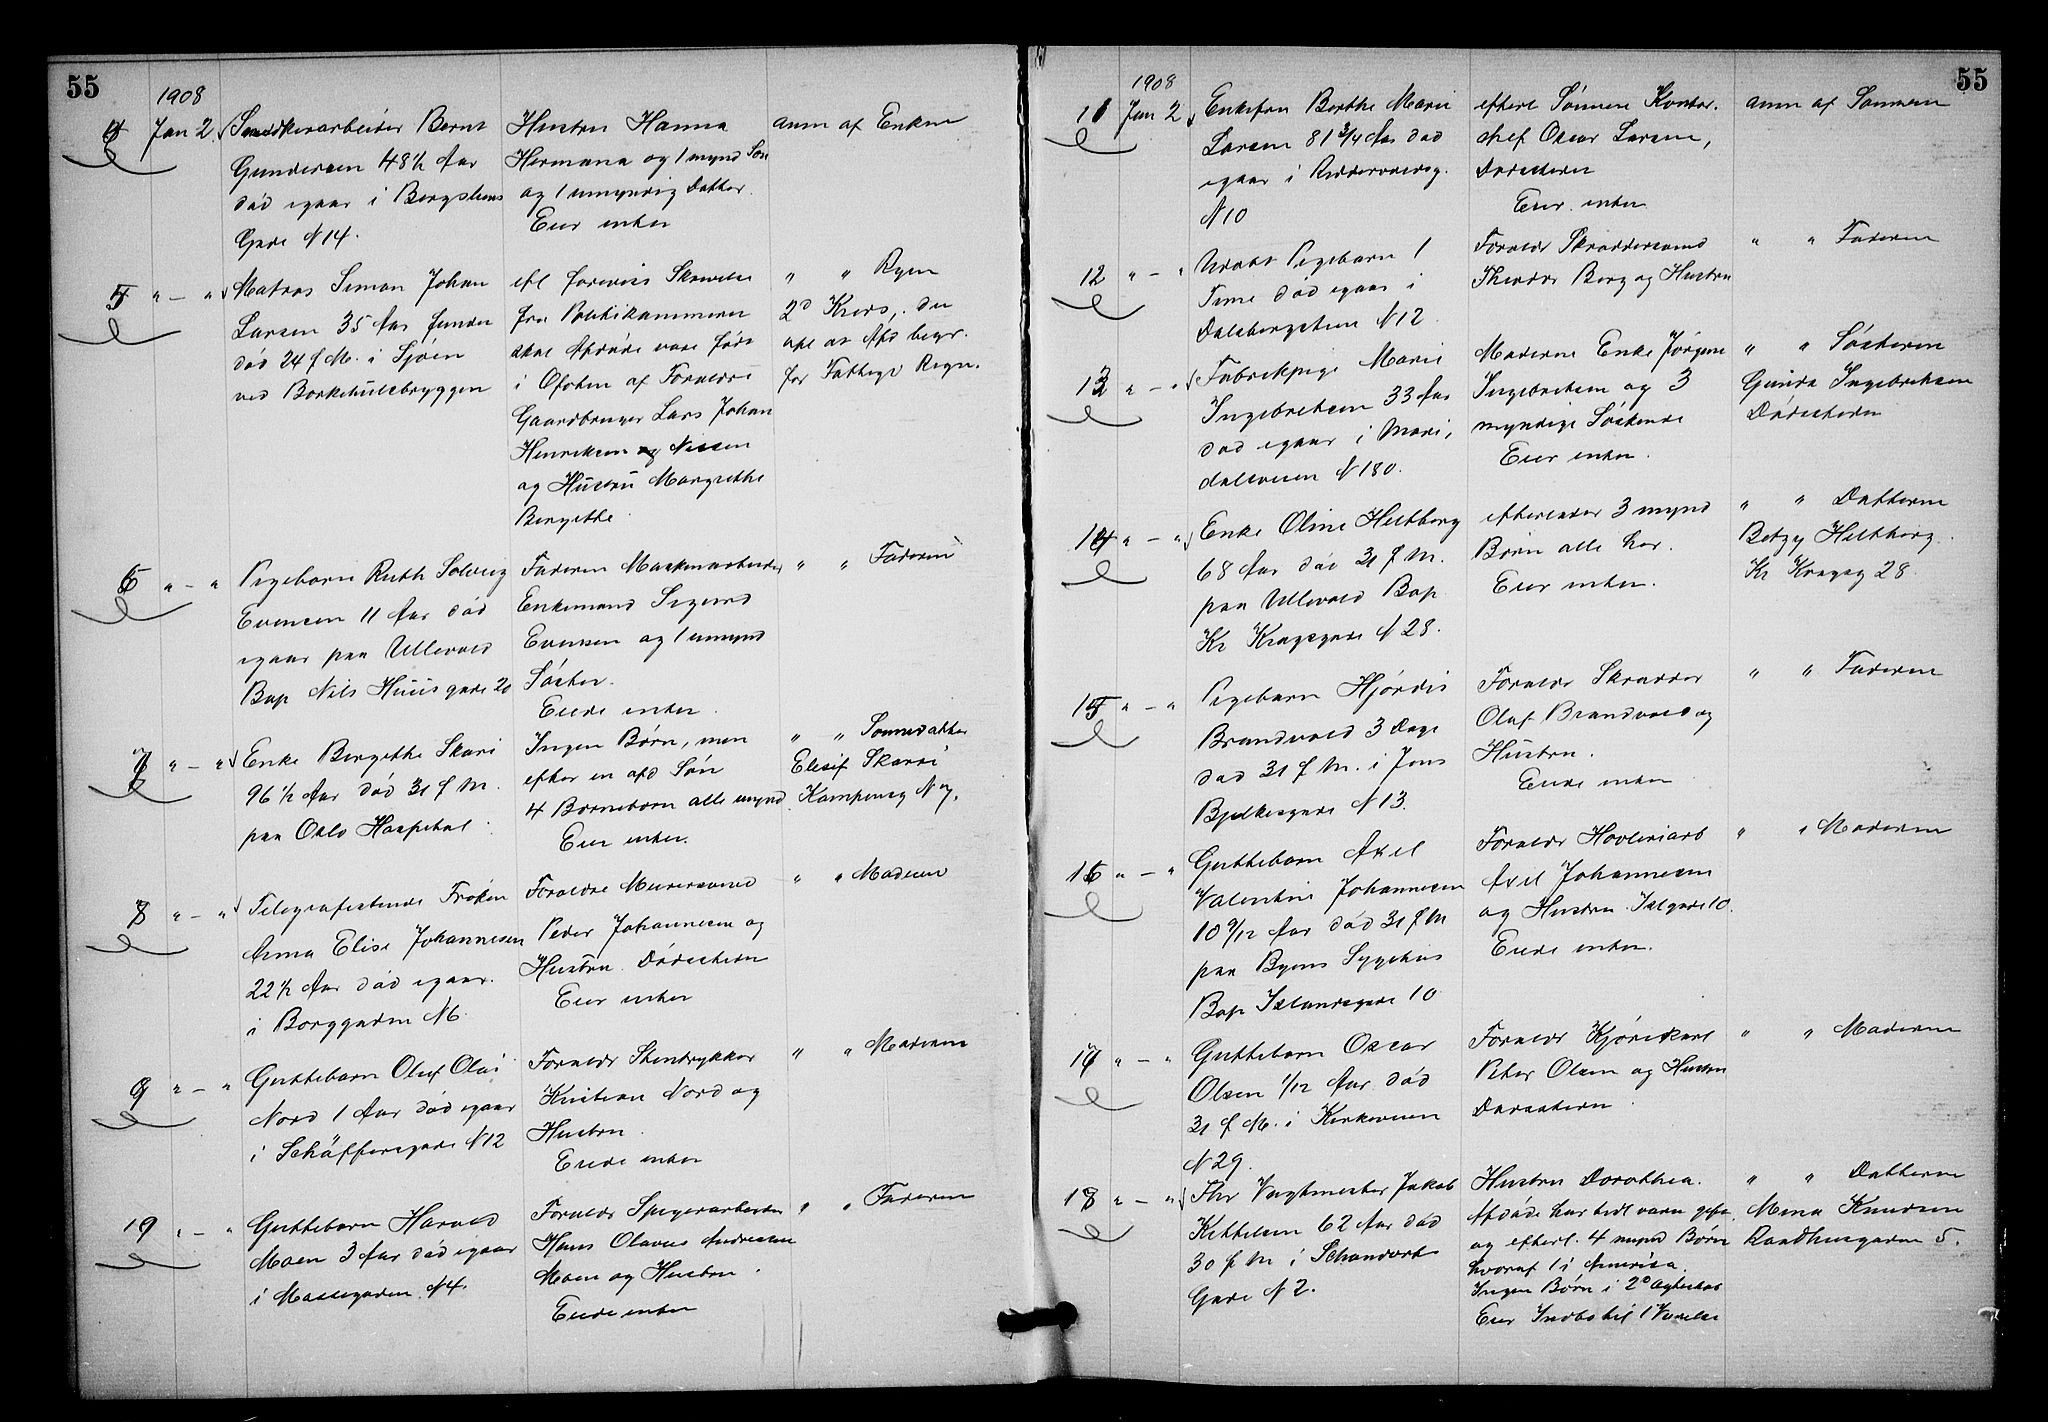 55
1908
4 Jan 2. Snedkerarbeider Bernt
Gundersen 48½ Aar
død igaar i Bergsliens
Gade N 14.
Hustru Hanna
Hermana og 1 mynd Søn
og 1 umyndig Datter.
Eier intet
anm af Enken
5 " — " Matros Simon Johan
Larsen 35 Aar funden
død 24 f M. i Sjøen
ved Borkehulsbryggen
efl forevist Skrivelse
fra Politikammeret
skal Afdøde være født
i Ofoten af Forældre
Gaardbruger Lars Johan
Henriksen Nissen
og Hustru Margrethe
Bergitte.
" " Byen
2d Kreds, der
opl at Afd begr.
for Fattigv Regn.
6 " — " Pigebarn Ruth Solveig
Evensen 11 Aar død
igaar paa Ullevold
Bop Nils Huus gade 20
Faderen Maskinarbeider
Enkemand Sigurd
Evensen og 1 umynd
Søster.
Eiede intet
" " Faderen
7 " — " Enke Bergitte Skari
96½ Aar død 31 f M.
paa Oslo Hospital
Ingen Børn, men
efter en afd Søn
4 Børnebørn alle mynd
Eier intet.
" " Sønnedatter
Elisif Skarri
Kampensg N 7.
8 " — " Telegrafistinde Frøken
Anna Elise Johannesen
22½ Aar død igaar.
i Borggaden N 6.
Forældre Murersvend
Peder Johannesen og
Hustru. Dødsattesten
Eier intet
" " Moderen
9 " — " Guttebarn Oluf Olai
Nord 1 Aar død igaar
i Schäffersgade N 12
Forældr Stentrykker
Kristian Nord og
Hustru.
Eiede intet
" " Moderen
10 " — " Guttebarn Harald
Moen 3 Aar død igaar
i Mossegaden N 4.
Forældr Spigerarbeider
Hans Olavus Andreassen
Moen og Hustru.
Eiede intet
" " Faderen
55
1908
11 Jan 2 Enkefru Berthe Marie
Larsen 81 3/4 Aar død
igaar i Riddervoldsg.
N 10
efterl Sønnen Kontor.
chef Oscar Larsen,
Dødsattesten
Eier intet
anm af Sønnen
12 " — " Udøbt Pigebarn 1
Time død igaar i
Dalsbergstien N 12
Forældr Skræddersvend
Theodor Berg og Hustru
" " Faderen
13 " — " Fabrikpige Marie
Ingebretsen 33 Aar
død igaar i Mari,
dalsveien N 180.
Moderen Enke Jørgine
Ingebretsen og 3
myndige Søskende
Eier intet.
" " Søsteren
Gunda Ingebretsen
Dødsattesten
14 " — " Enke Oline Heltberg
68 Aar død 31 f M.
paa Ullevold Bop
Kr Kragsgade N 28.
efterlader 3 mynd
Børn alle her.
Eier intet.
" " Datteren
Betzy Heltberg.
Kr Kragsg 28.
15 " — " Pigebarn Hjørdis
Brandvold 3 Dage
død 31 f M. i Jens
Bjelkesgade N 13.
Forældr Skrædder
Olaf Brandvold og
Hustru.
Eiede intet
" " Faderen
16 " — " Guttebarn Axel
Valentin Johannesen
10 9/12 Aar død 31 f M
paa Byens Sygehus
Bop Islandsgade 10
Forældr Høvleriarb
Axel Johannesen
og Hustru Islgade 10.
Eiede intet.
" " Moderen
17 " — " Guttebarn Oscar
Olsen 1/12 Aar død
31 f M. i Kirkeveien
N 29.
Forældr Kjørekarl
Peter Olsen og Hustru
Dødsattesten
" " Moderen
18 " — " Fhv Vagtmester Jakob
Kittelsen 62 Aar død
30 f M i Schandorfs
Gade N 2.
Hustru Dorothea.
Afdøde har tidl været gift
og efterl. 4 mynd Børn
hvoraf 1 i Amerika.
Ingen Børn i 2d Ægteskab
Eier Indbo til 1 Værelse
" " Datteren
Mina Knudsen
Raadhusgaden 5.